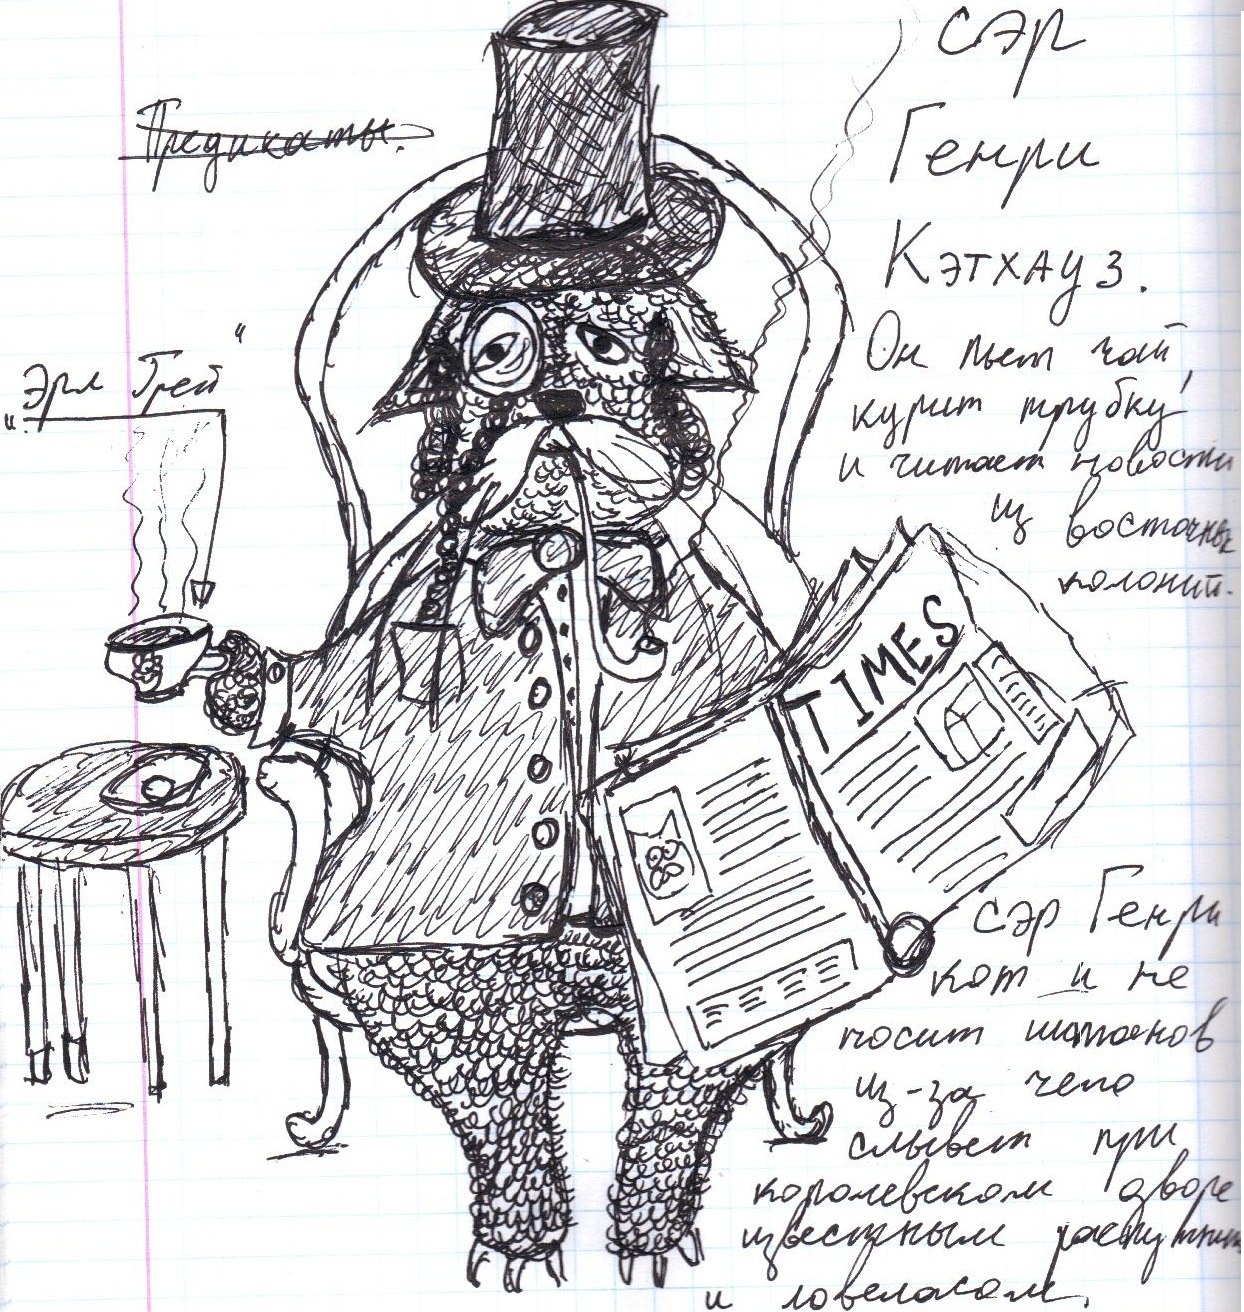 Предикаты.
сэр
Генри
Кэтхауз.
Он пьет чай,
курит трубку
и читает новости
из восточных
колоний.
"Эрл Грей"
TIMES
Сэр Генри
кот и не
носит штанов
из-за чего
слывет при
королевском дворе
известным распутником
и ловеласом.